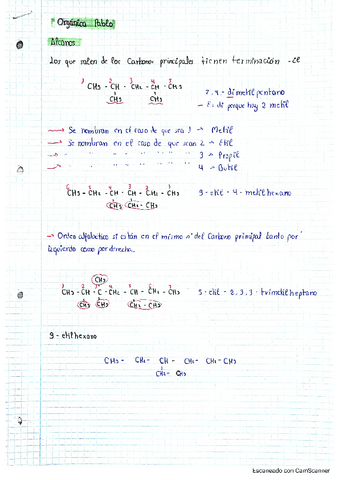 Orgánica Pablo
Alcanos
Los que salen de los Carbono principales tienen terminación -il
1 2 3 4 5
CH3 - CH - CH2 - CH - CH3
CH3 CH3
2,4-dimetilpentano
↳ Es di porque hay 2 metil
→ Se nombran en el caso de que sea 1 → Metil
→ Se nombran en el caso de que sean 2 → Etil
→ " " " " " 3 → Propil
→ " " " " " 4 → Butil
CH3 - CH2 - CH - CH - CH2 - CH3
CH3 CH2-CH3
3-etil-4-metilhexano
→ Orden alfabético si están en el mismo nº del Carbono principal tanto por
izquierda como por derecha.
CH3
CH3 - CH - C - CH2 - CH - CH2 - CH3
CH3 CH3 CH2-CH3
5-etil-2,3,3-trimetilheptano
3-etilhexano
CH3 - CH2 - CH - CH2 - CH2 - CH3
CH2 - CH3
Escaneado con CamScanner